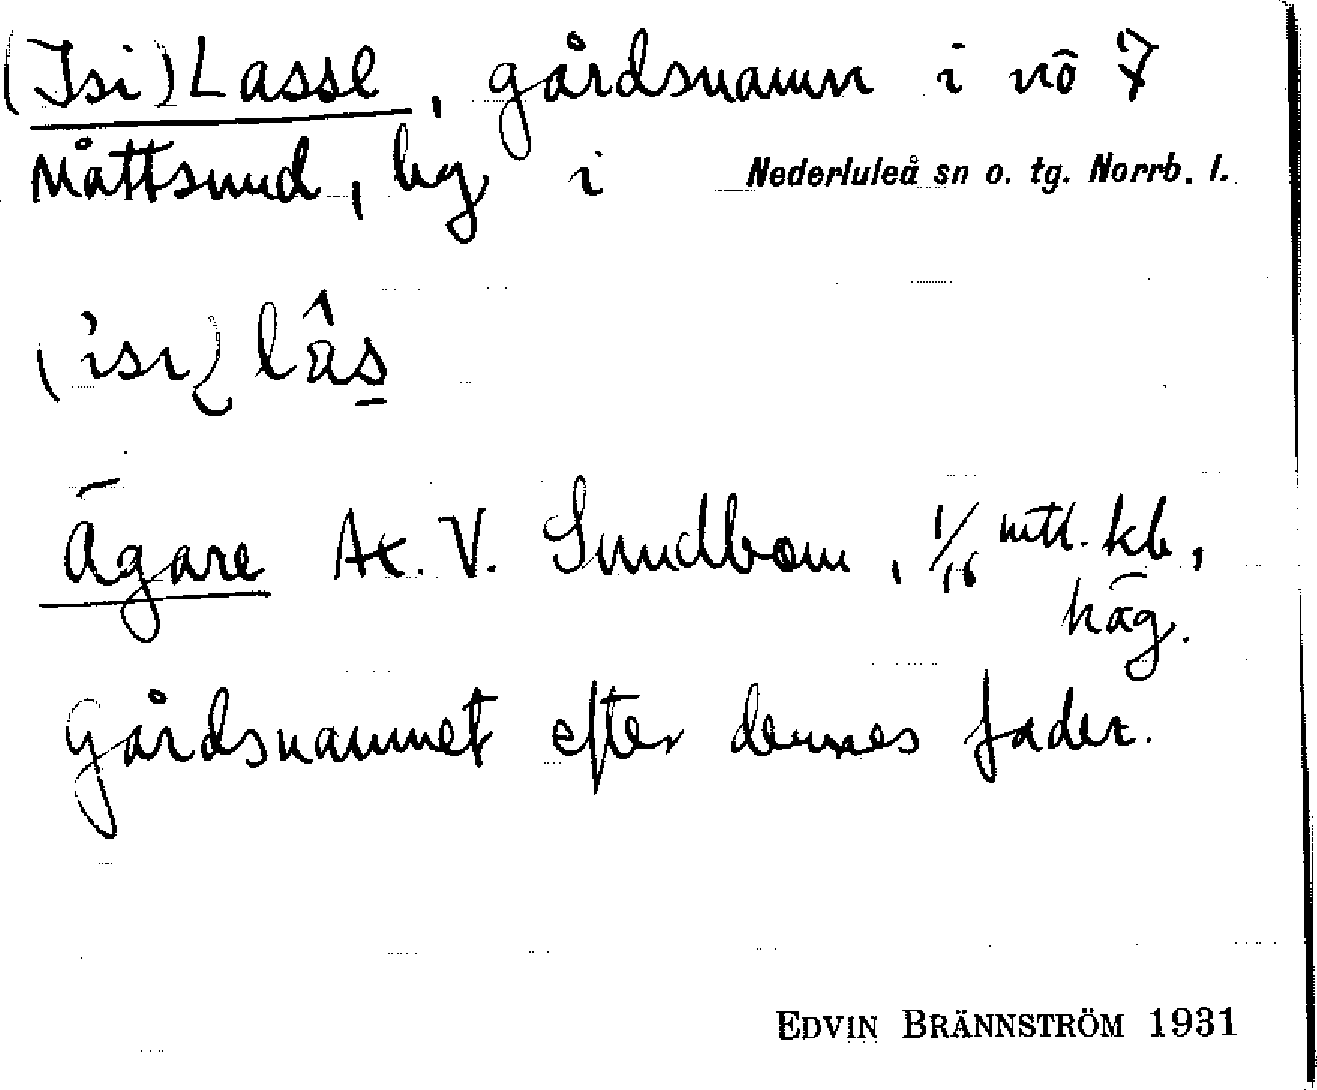 (Isi)Lasse, gårdsnamn i nō 7
Måttsund, by i Nederluleå sn o. tg. Norrb. l.
(isi) lâs
Ägare Ax. V. Sundbom, 1/16 mtl. kb,
häg.
Gårdsnamnet efter dennes fader.
EDVIN BRÄNNSTRÖM 1931